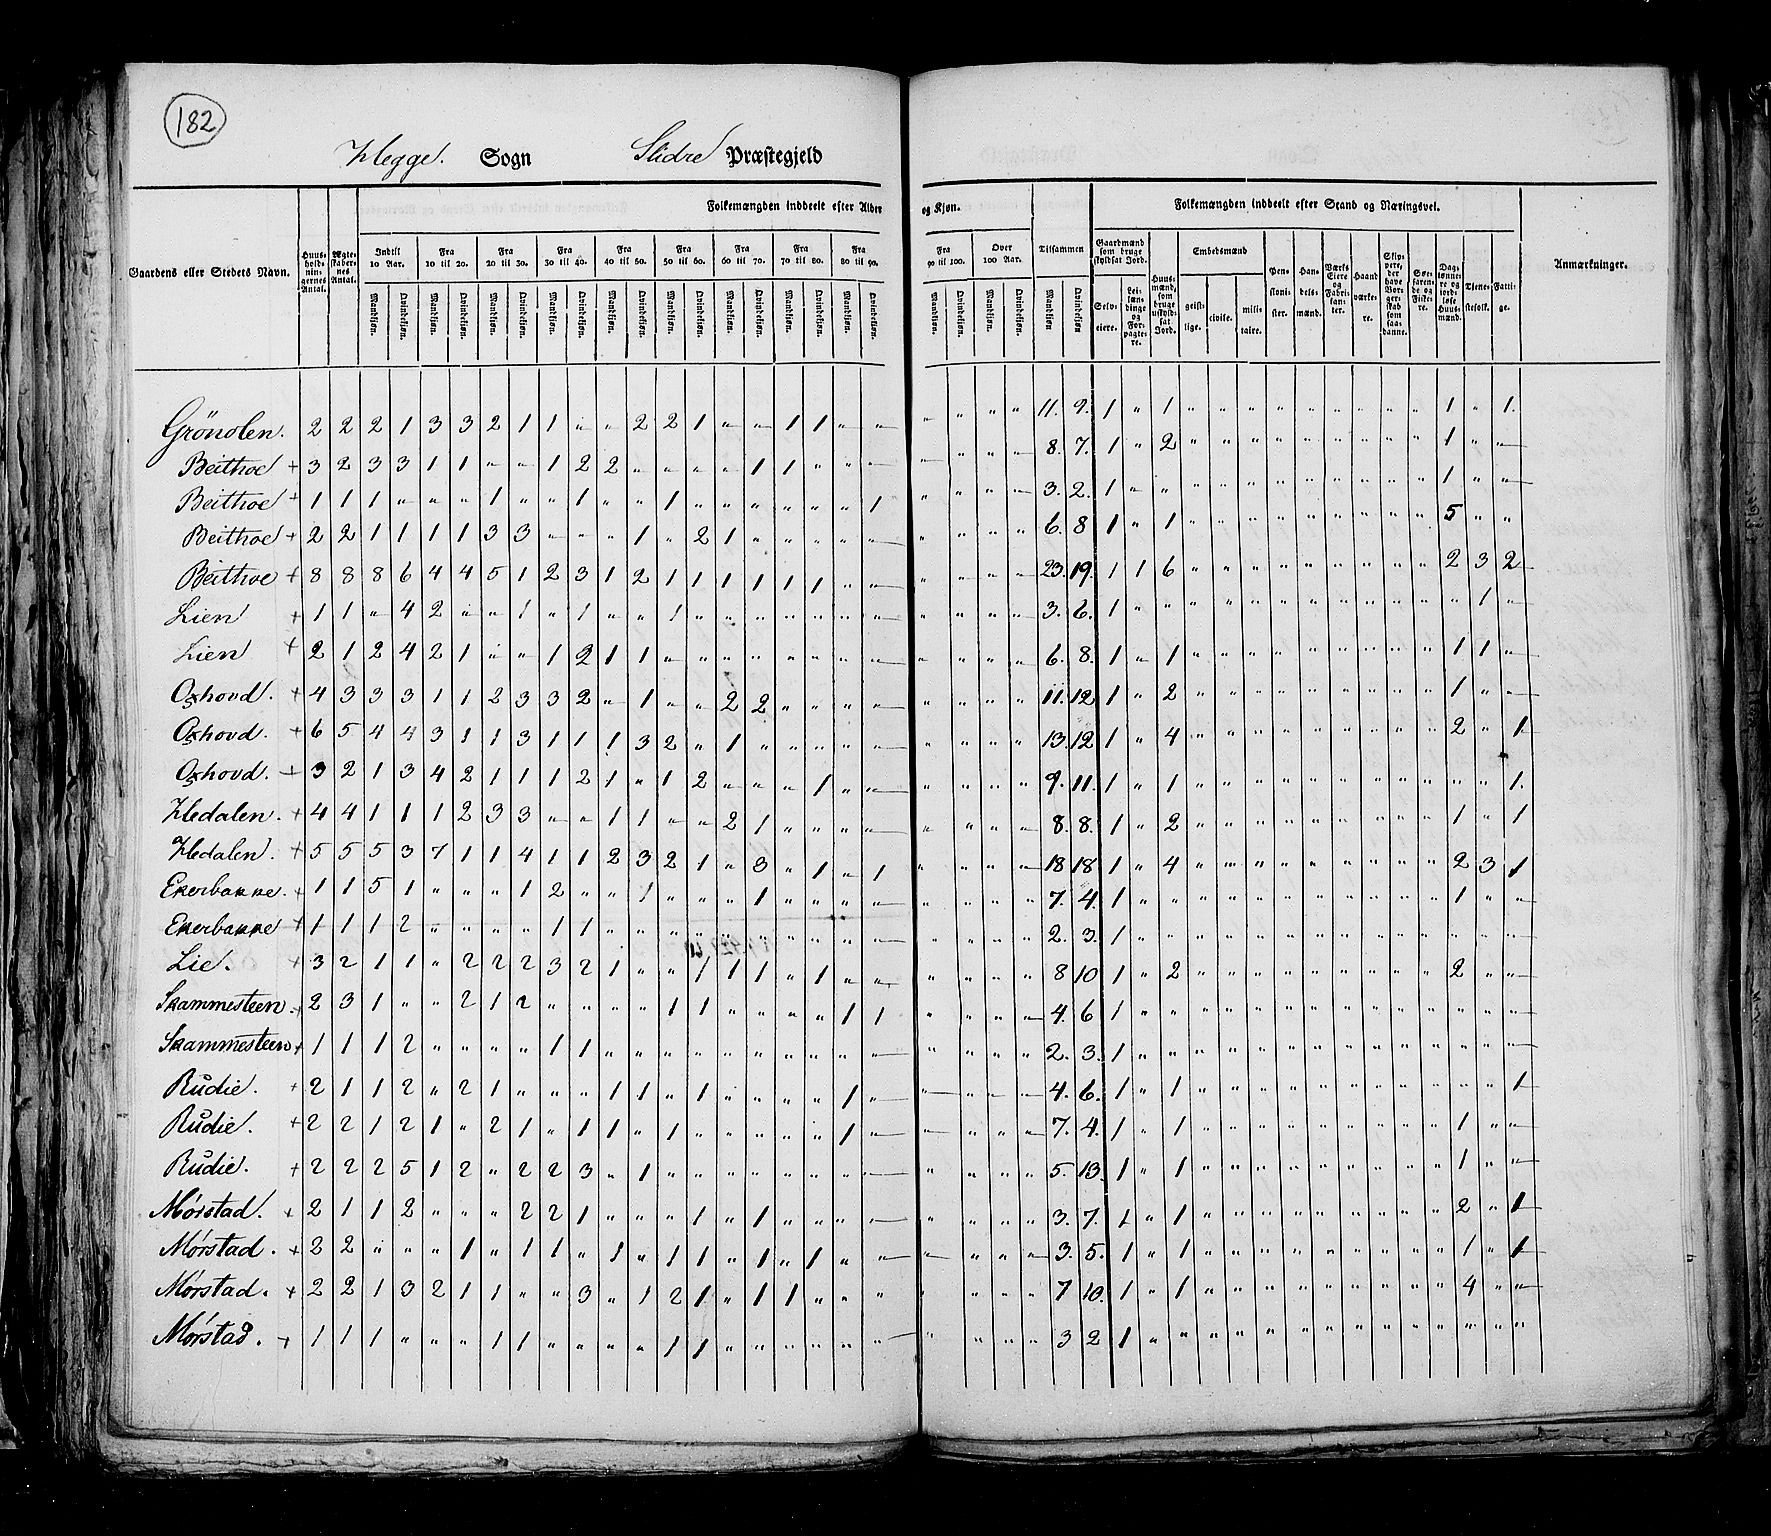 182
Hegge. Sogn Slidre Præstegjeld
Gaardens eller Stedets Navn.
Huusholdningernes Antal.
Ægteskabernes Antal.
Folkemængden inddeelt efter Alder og Kjøn.
Indtil 10 Aar. Fra 10 til 20. Fra 20 til 30. Fra 30 til 40. Fra 40 til 50. Fra 50 til 60. Fra 60 til 70. Fra 70 til 80. Fra 80 til 90. Fra 90 til 100. Over 100 Aar. Tilsammen
Mandkjøn. Qvindekjøn.
Folkemængden inddeelt efter Stand og Næringsvei.
Gaardmænd som bruge skyldsat Jord.
Selveiere. Leilændinge og Forpagtere.
Huusmænd, som bruge uskyldsat Jord.
Embedsmænd
geistlige. civile. militaire.
Pensionister. Handelsmænd. Værks Eiere og Fabrikanter. Haandværkere. Skippere, der have Borgerskab som saadanne. Søefarende og Fiskere. Daglønnere og jordløse Huusmænd. Tjenestefolk. Fattige.
Anmærkninger.
Grönolen. 2 2 2 1 3 3 2 1 1 " " 2 2 1 " " 1 1 " " " " " " 11. 9. 1 " 1 " " " " " " " " " 1 " 1.
Beithoe + 3 2 3 3 1 1 " " 1 2 2 " " " " 1 1 " " " " " " " 8. 7. 1 " 2 " " " " " " " " " 1 " "
Beithoe + 1 1 1 " " " 1 " " 1 " " 1 " " " " " " 1 " " " " 3. 2. 1 " " " " " " " " " " " 1 " "
Beithoe + 2 2 1 1 1 1 3 3 " " " 1 " 2 1 " " " " " " " " " 6. 8 1 " 1 " " " " " " " " " 5 " "
Beithoe + 8 8 8 6 4 4 5 1 2 3 1 2 1 1 1 1 1 1 " " " " " " 23. 19. 1 1 6 " " " " " " " " " 2 3 2
Lien + 1 1 " 4 2 " " 1 " 1 " " 1 " " " " " " " " " " " 3. 6. 1 " " " " " " " " " " " " 1 "
Lien + 2 1 2 4 2 1 " " 1 2 1 1 " " " " " " " " " " " " 6. 8. 1 " 1 " " " " " " " " " 1 1 "
Oxhovd. + 4 3 3 3 1 1 2 3 3 2 " 1 " " 2 2 " " " " " " " " 11. 12 1 " 2 " " " " " " " " " 1 " "
Oxhovd. + 6 5 4 4 3 1 1 3 1 1 1 3 2 " 1 " " " " " " " " " 13. 12 1 " 4 " " " " " " " " " 2 " 1
Oxhovd. + 3 2 1 3 4 2 1 1 1 2 1 " 1 2 " " " 1 " " " " " " 9. 11. 1 " 1 " " " " " " " " " " " 1.
Hedalen. + 4 4 1 1 1 2 3 3 " " 1 1 " " 2 1 " " " " " " " " 8. 8. 1 " 2 " " " " " " " " " 1 " 1
Hedalen. + 5 5 5 3 7 1 1 4 1 1 2 3 2 1 " 3 " 1 " 1 " " " " 18 18 1 " 4 " " " " " " " " " 2 3 1
Ekerbakke. + 1 1 5 1 " " " 1 2 " " 1 " " " 1 " " " " " " " " 7. 4. 1 " " " " " " " " " " " 1 " "
Ekerbakke + 1 1 1 2 " " " " 1 1 " " " " " " " " " " " " " " 2. 3. 1 " " " " " " " " " " " " " "
Lie. + 3 2 1 1 " 2 2 2 3 2 1 " " 1 1 1 " 1 " " " " " " 8 10 1 " 2 " " " " " " " " " 2 " "
Skammesteen. + 2 3 1 " " 2 1 2 " " " " 1 1 " " " " 1 1 " " " " 4. 6 1 " " " " " " " " " " " " " "
Skammesteen + 1 1 1 2 " " " " 1 1 " " " " " " " " " " " " " " 2. 3. 1 " " " " " " " " " " " " " "
Rudie. + 2 1 1 2 " 2 1 " " " 1 1 " 1 " " " " 1 " " " " " 4. 6. 1 " 1 " " " " " " " " " " " 1
Rudie. + 2 2 1 2 1 " 2 1 " 1 1 " 1 " " " " " 1 " " " " " 7. 4. 1 " 1 " " " " " " " " " 1 " "
Rudie. + 2 2 2 5 1 2 " 2 2 3 " 1 " " " " " " " " " " " " 5. 13. 1 " 1 " " " " " " " " " 1 " "
Mørstad. + 2 1 1 2 " " " 2 2 1 " " " 1 " 1 " " " " " " " " 3. 7. 1 " 1 " " " " " " " " " 2 " 1
Mørstad. + 2 2 " " " 1 " 1 1 " 1 " 1 1 " 1 " 1 " " " " " " 3. 5. 1 " 1 " " " " " " " " " 1 " 1
Mørstad. + 2 2 1 3 2 1 1 " " 3 " 1 2 1 " 1 1 " " " " " " " 7 10. 1 " 1 " " " " " " " " " 4 " "
Mørstad. + 1 1 1 " " " 1 1 " " " " 1 1 " " " " " " " " " " 3 2 1 " " " " " " " " " " " " " "